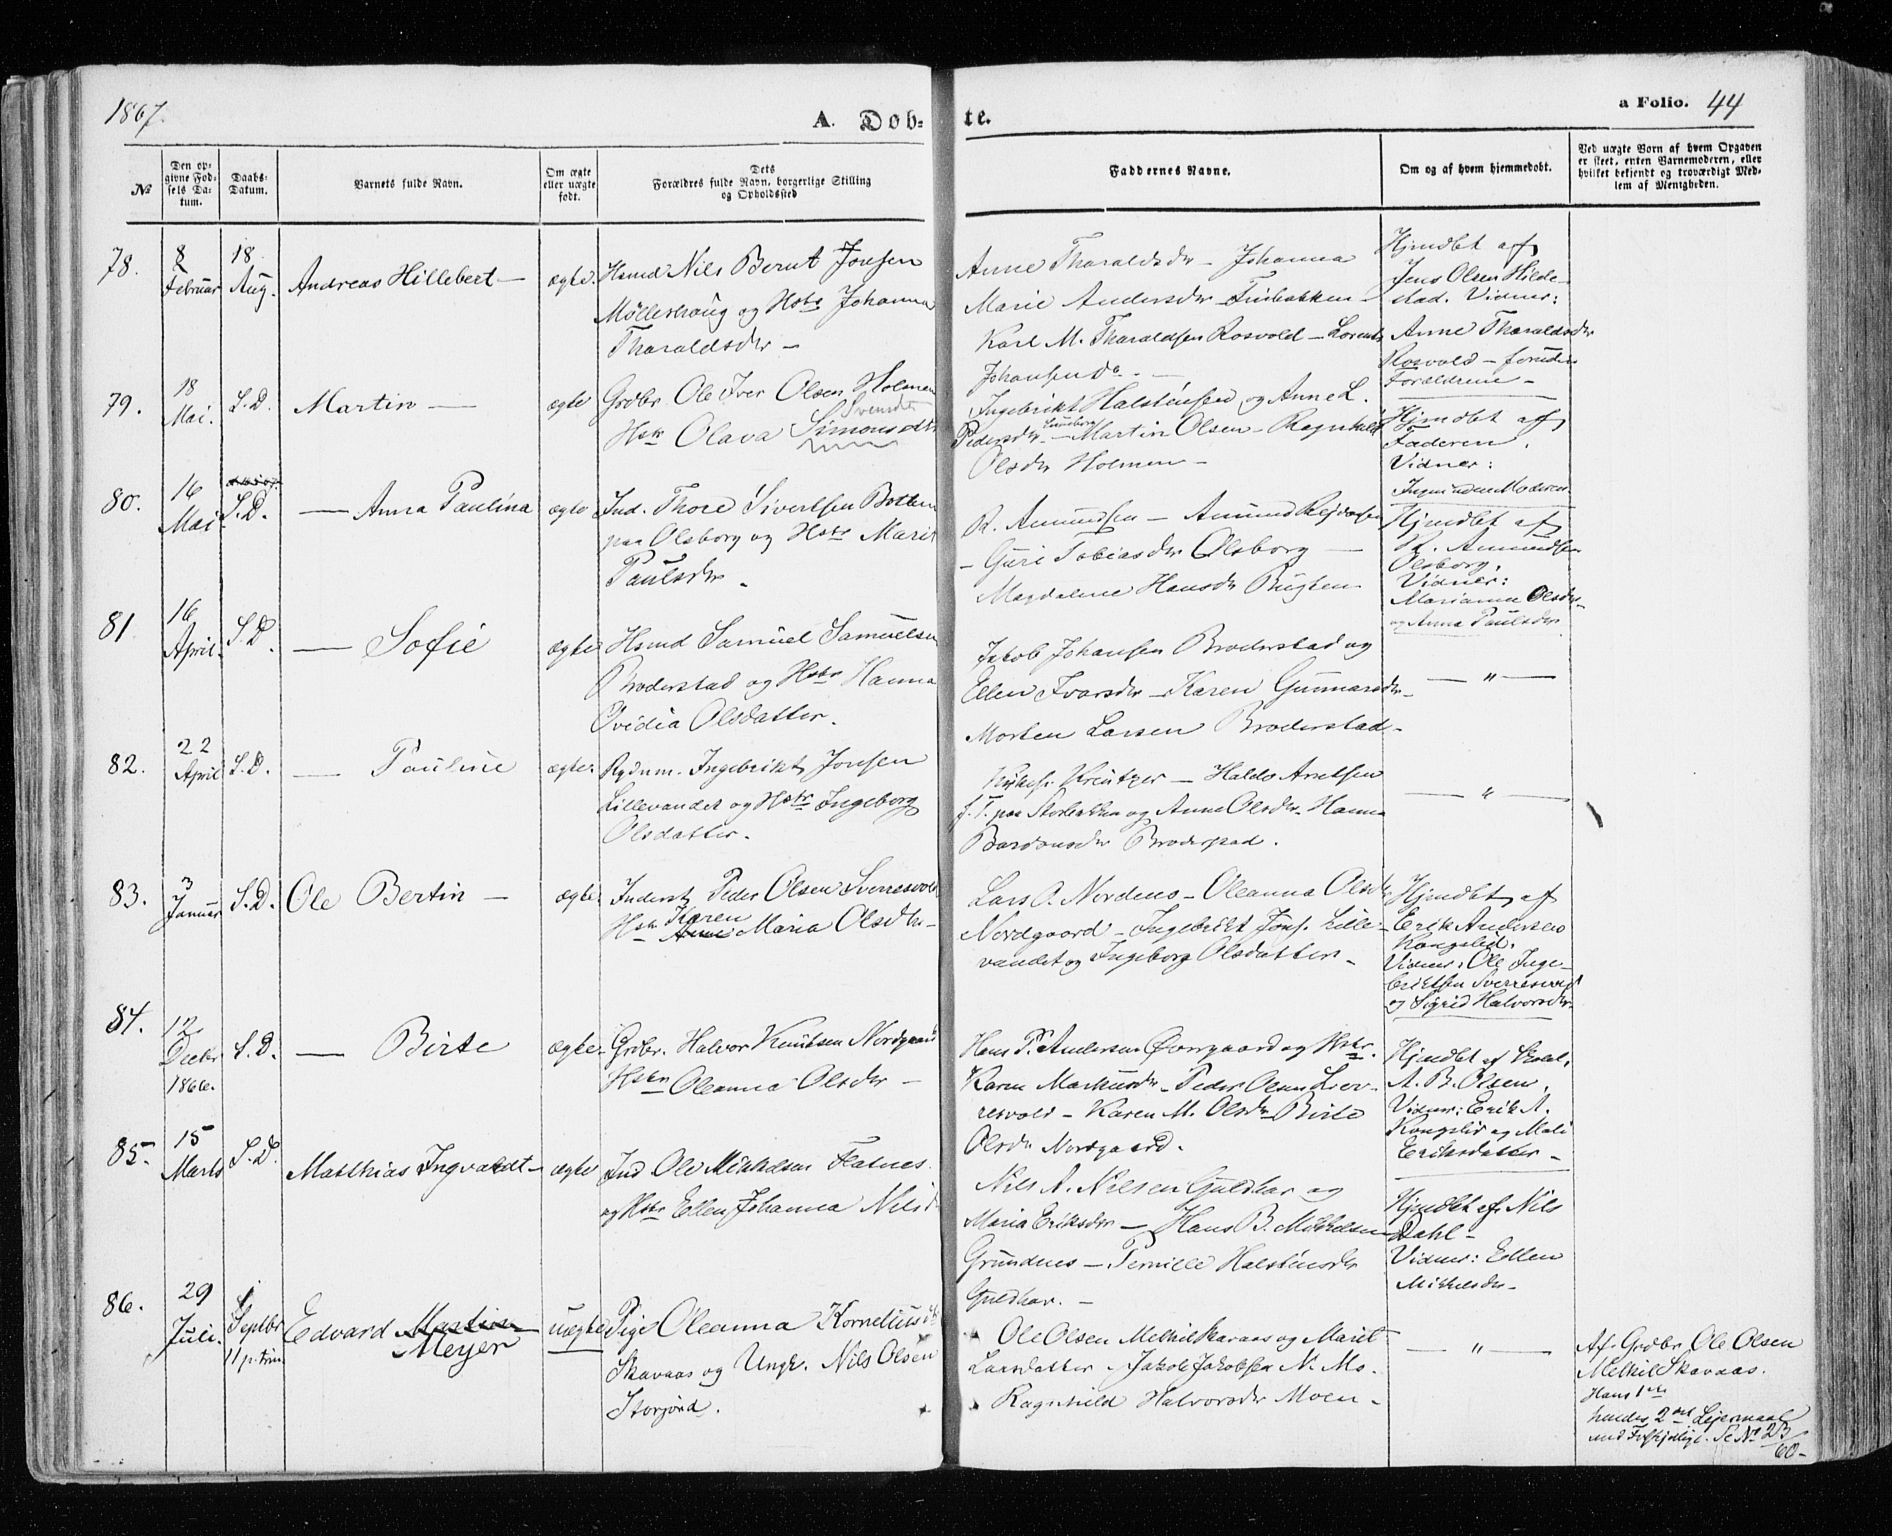 1867.
A. Døb-
te.
a Folio. 44
No
Den op-
givne Fød-
sels Da-
tum.
Daabs-
Datum.
Barnets fulde Navn.
Om ægte
eller uægte
født.
Dets
Forældres fulde Navn, borgerlige Stilling
og Opholdssted
Faddernes Navne.
Om og af hvem hjemmedøbt.
Ved uægte Børn af hvem Opgaven
er skeet, enten Barnemoderen, eller
hvilket bekjendt og troværdigt Med-
lem af Menigheden.
78.
8
Februar
18
Aug.
Andreas Hillebert —
ægte.
Hsmd Nils Bernt Jonsen
Møllerhaug og Hstr Johanna
Tharaldsdtr —
Anne Tharaldsdtr — Johanna
Marie Andersdtr
Karl M. Tharaldsen Rosvold — Lorents
Johansen do. —
Hjmdbt af
Jens Olsen Hilde-
stad. Vidner:
Anne Tharaldsdtr
Rosvold — foruden
Forældrene —
79.
18
Mai.
S.D.
Martin —
ægte
Grdbr Ole Iver Olsen Holmen
Svendsdtr
Hstr Olava Simonsdtr
Ingebrikt Halsteinsen og Anne L.
Pedersdtr — Martin Olsen — Ragnhild
Olsdtr Holmen —
Hjmdbt af
Faderen.
Vidner:
Ingen uden Moderen
80.
16
Mai
S.D.
— Anna Paulina
ægte
Ind. Thore Sivertsen Botten
paa Olsborg og Hstr Marit
Paulsdtr —
R. Amundsen — Amund
— Guri Tobiasdtr Olsborg —
Magdalene Hansdtr Bugten
Hjmdbt af
R. Amundsen
Olsborg.
Vidner:
Marianna Olsdtr
og Anna Paulsdtr
81
16
April.
S.D.
— Sofie
ægte
Hsmd Samuel Samuelsen
Broderstad og Hstr Hanna
Ovidia Olsdatter.
Jakob Johansen Broderstad og
Ellen Ivarsdtr — Karen Gunnarsdtr —
Morten Larsen Broderstad —
— " —
82.
22
April
S.D.
— Pauline
ægte.
Rydn. Ingebrikt Jonsen
Lillevandet og Hstr Ingeborg
Olsdatter.
Kreutzer — Haldo Arntsen
f. T. paa og Anne Olsdtr. Hanna
Bardonsdtr Broderstad.
— " —
83.
3
Januar
S.D.
Ole Bertin —
ægte.
Inderst Peder Olsen Sverresvold
Karen
Hstr Anne Maria Olsdtr —
Lars O. Nordens — Oleanna Olsdtr
Nordgaard — Ingebrikt Jons. Lille-
vandet og Ingeborg Olsdatter —
Hjmdbt af
Erik Andersen
Kongslid.
Vidner: Ole Inge-
briktsen Sverresvold
og Sigrid Halvorsdtr
84.
12
Decbr
1866.
S.D.
— Birte
ægte.
Grdbr. Halvor Knudsen Nordgaard
Hstr Oleanna Olsdtr —
Hans P. Andersen Øvergaard og Hstr.
Karen Markusdtr — Peder Olsen Sver-
resvold — Karen M. Olsdtr Birte
Olsdtr Nordgaard.
Hjmdbt af Skolel.
A. B. Olsen.
Vidner: Erik A.
Kongslid og Mali
Eriksdatter —
85.
15
Marts
S.D.
Matthias Ingvardt —
ægte
Ind Ole Mikkelsen Flatnes
og Hstr Ellen Johanna Nilsd
Nils A. Nilsen Guldhav og
Maria Eriksdtr — Hans B. Mikkelsen
Grundnes — Pernille Halsteinsdtr
Guldhav. —
Hjmdbt af Nils
Dahl —
Vidner: Ellen
Mikkelsdtr —
86.
29
Juli.
1
Septbr
11 p. trin
Edvard Martin
Meyer
uægte
Pige Oleanna Korneliusdtr
Skavaas og Ungk. Nils Olsen
Storjord.
Ole Olsen Melhil Skavaas og Marit
Larsdatter. Jakob Jakobsen N. Mo.
Ragnhild Halvorsdtr Moen —
— " —
Af Grdbr Ole Olsen
Melhil Skavaas.
Hans 1ste
hendes 2det Leiermaal
Se No 23/60 —